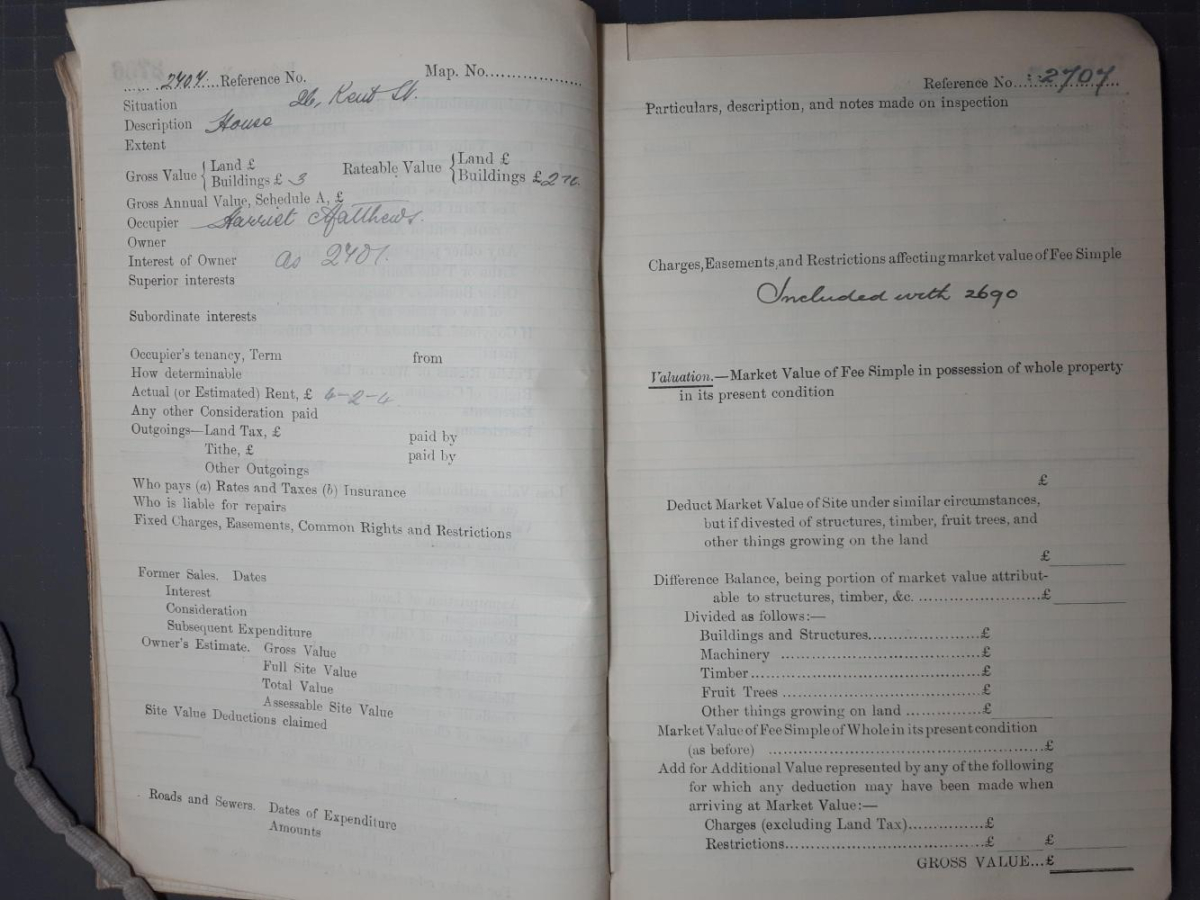 2707 Reference No. Map. No.
Situation 26, Kent St.
Description House
Extent
Gross Value { Land £
Buildings £ 3
Rateable Value { Land £
Buildings £ 2
Gross Annual Value, Schedule A, £
Occupier Harriet Matthews.
Owner
Interest of Owner as 2701.
Superior interests
Subordinate interests
Occupier's tenancy, Term from
How determinable
Actual (or Estimated) Rent, £
Any other Consideration paid
Outgoings—Land Tax, £ paid by
Tithe, £ paid by
Other Outgoings
Who pays (a) Rates and Taxes (b) Insurance
Who is liable for repairs
Fixed Charges, Easements, Common Rights and Restrictions
Former Sales. Dates
Interest
Consideration
Subsequent Expenditure
Owner's Estimate. Gross Value
Full Site Value
Total Value
Assessable Site Value
Site Value Deductions claimed
Roads and Sewers. Dates of Expenditure
Amounts
Reference No. 2707
Particulars, description, and notes made on inspection
Charges, Easements, and Restrictions affecting market value of Fee Simple
Included with 2690
Valuation.—Market Value of Fee Simple in possession of whole property
in its present condition
£
Deduct Market Value of Site under similar circumstances,
but if divested of structures, timber, fruit trees, and
other things growing on the land
£
Difference Balance, being portion of market value attribut-
able to structures, timber, &c. £
Divided as follows:—
Buildings and Structures £
Machinery £
Timber £
Fruit Trees £
Other things growing on land £
Market Value of Fee Simple of Whole in its present condition
(as before) £
Add for Additional Value represented by any of the following
for which any deduction may have been made when
arriving at Market Value:—
Charges (excluding Land Tax) £
Restrictions £ £
GROSS VALUE...£